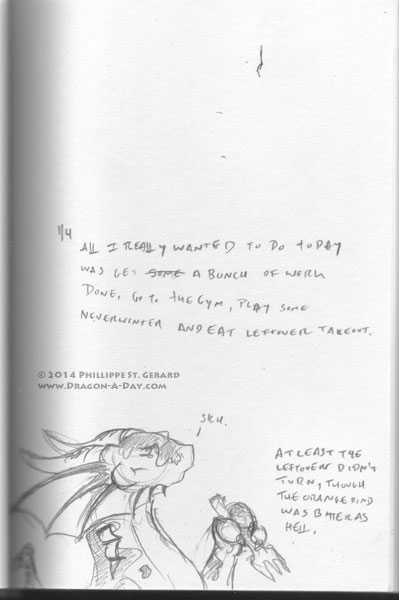 1/4
ALL I REALLY WANTED TO DO TODAY
WAS GET SOME A BUNCH OF WORK
DONE, GO TO THE GYM, PLAY SOME
NEVERWINTER AND EAT LEFTOVER TAKEOUT.
© 2014 PHILLIPPE ST. GERARD
WWW.DRAGON-A-DAY.COM
AT LEAST THE
LEFTOVERS DIDN'T
TURN, THOUGH
THE ORANGE RIND
WAS BITTER AS
HELL.